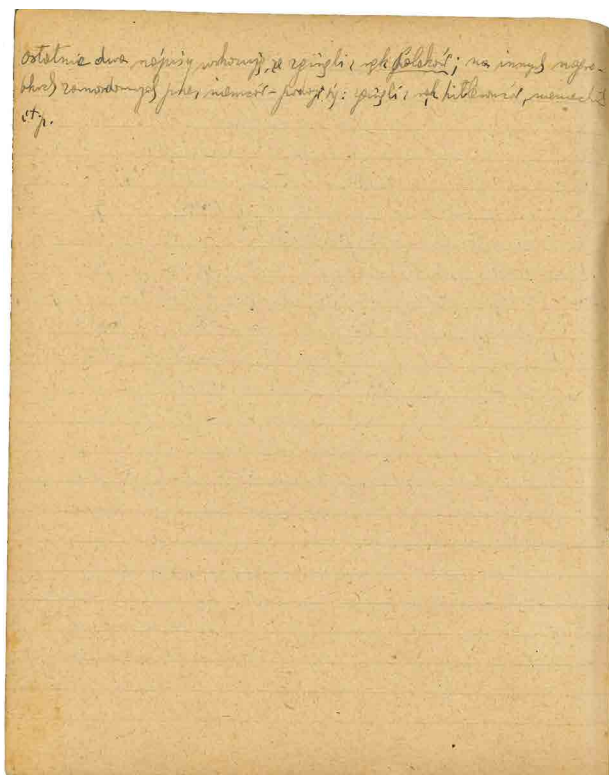 ostatnie dwa napisy wskazują, że zginęli z rąk Polaków; na innych nagro-
bkach zamordowanych przez niemców - podają tę: zginęli z rąk hitlerowców, niemieckich
etp.